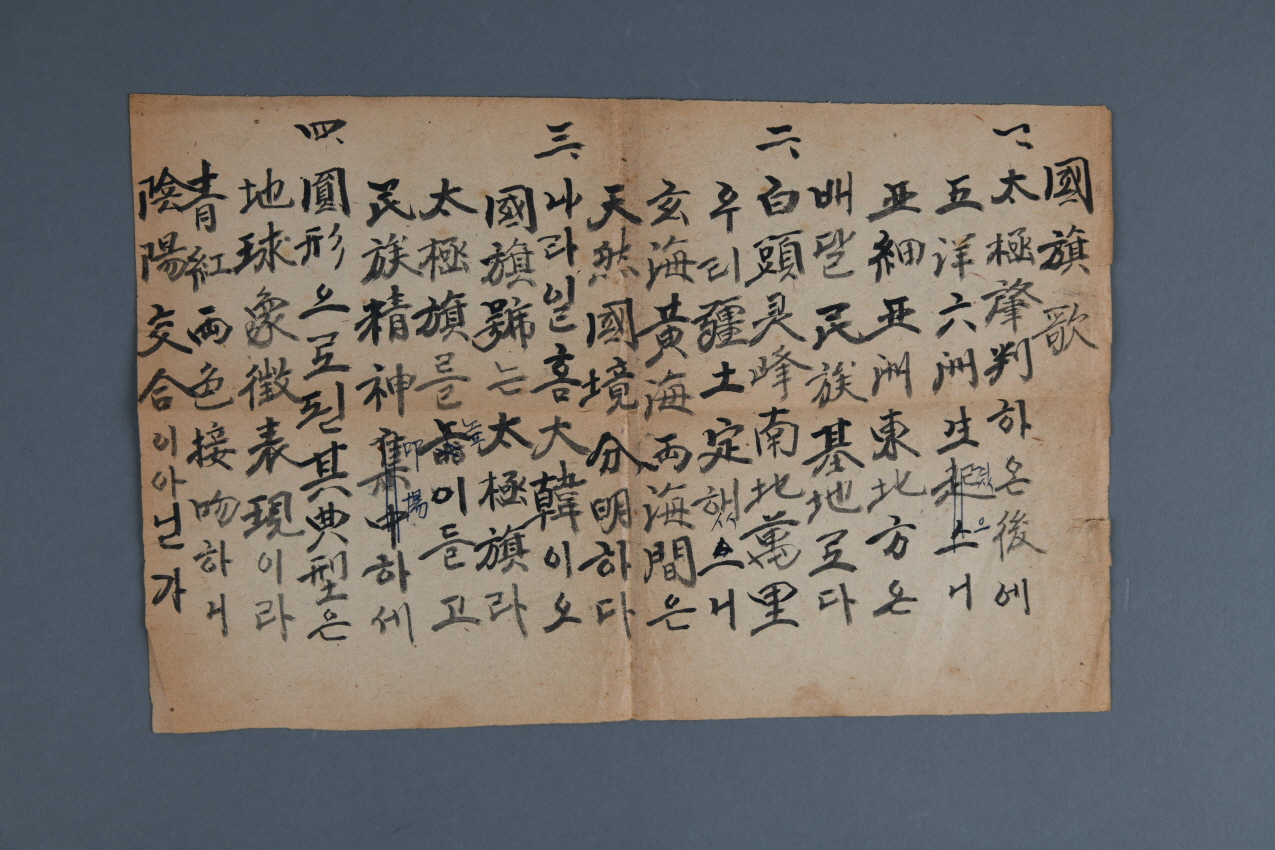 國旗歌
一、太極肇判하온後에
五洋六洲生起스니
亞細亞洲東北方은
배달民族基地로다
二、白頭灵峰南北萬里
우리疆土定했스니
玄海黃海両海間은
天然國境分明하다
三、나라일홈大韓이오
國旗號는太極旗라
太極旗를높이들고
民族精神集中하세
昂揚
四、圓形으로된其典型은
地球象徵表現이라
青紅両色接吻하니
陰陽交合이아닌가